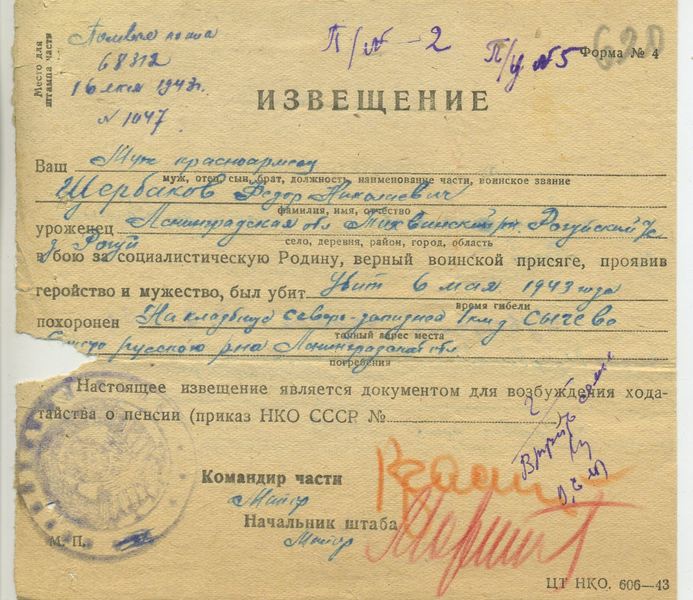 Место для
штампа части
Полевая почта
68312
16 мая 1943г.
N 1047
П/№-2
П/у №5
620
Форма № 4
ИЗВЕЩЕНИЕ
Ваш Муж красноармеец
муж, отец, сын, брат, должность, наименование части, воинское звание
Щербаков Федор Николаевич
фамилия, имя, отчество
уроженец Ленинградская обл Тихвинский рн Рогуйский с/с
д Рогуй
село, деревня, район, город, область
в бою за социалистическую Родину, верный воинской присяге, проявив
геройство и мужество, был убит Убит 6 мая 1943 года
время гибели
похоронен На кладбище северо-западнее 1км д Сычево
точный адрес места
русского р-на Ленинградской обл
погребения
Настоящее извещение является документом для возбуждения хода-
тайства о пенсии (приказ НКО СССР №
2
Командир части
Майор
Начальник штаба
Майор
М. П.
ЦТ НКО. 606—43